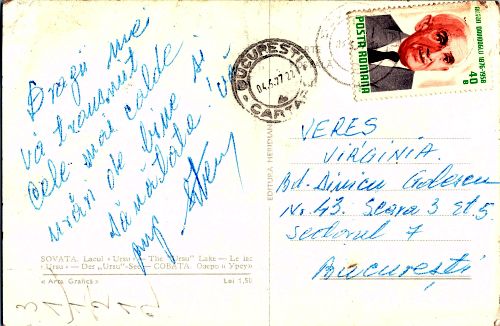 Dragii mei
vă transmit
cele mai calde
urări de bine și
sănătate!
SOVATA. Lacul „Ursu” — The "Ursu" Lake — Le lac
„Ursu” — Der „Ursu”-See — СОВАТА. Озеро „Урсу”
« Arta Grafică »
Lei 1,50
EDITURA MERIDIANE
BUCUREȘTI
04.6.77.22
CARTARE
POSTA ROMANA
1876-1958
40
B
VERES
VIRGINIA.
Bd. Dinicu Golescu
Nr. 43. Scara 3 et. 5
Sectorul 7
București